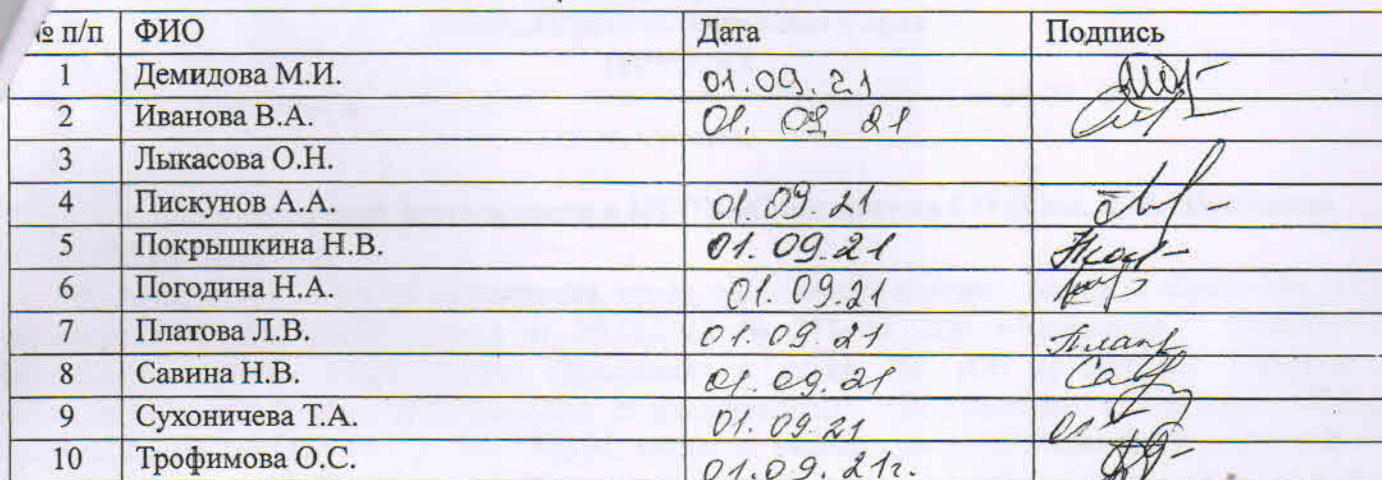 № п/п ФИО Дата Подпись
1 Демидова М.И. 01.09.21
2 Иванова В.А. 01.09 21
3 Лыкасова О.Н.
4 Пискунов А.А. 01.09.21
5 Покрышкина Н.В. 01.09.21
6 Погодина Н.А. 01.09.21
7 Платова Л.В. 01.09.21
8 Савина Н.В. 01.09.21
9 Сухоничева Т.А. 01.09.21
10 Трофимова О.С. 01.09.21г.